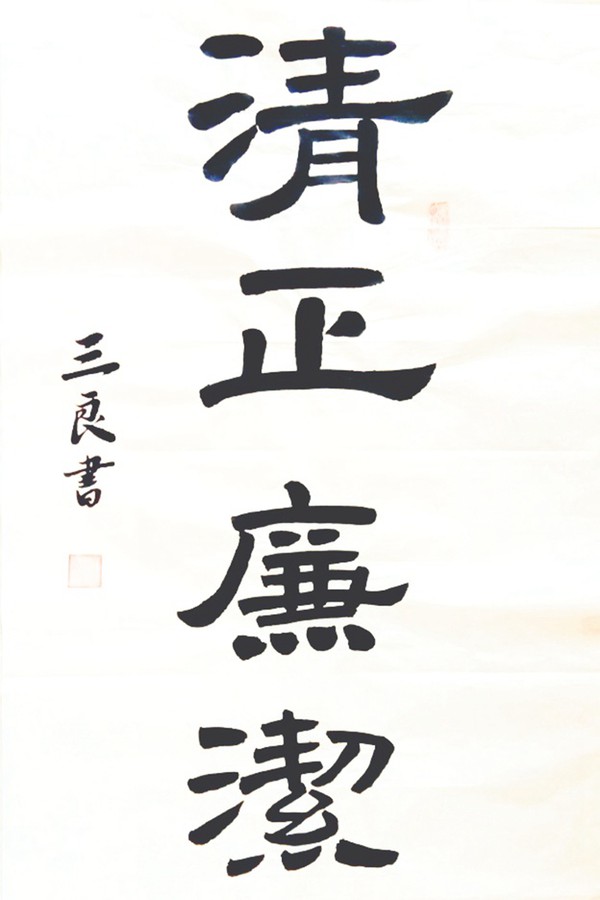 清正廉潔
三良書